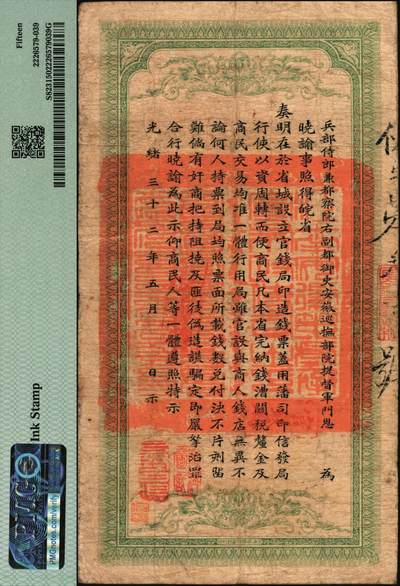 兵部侍郎兼都察院右副都御史安徽巡撫部院提督軍門恩 為
曉諭事照得皖省
奏明在於省城設立官錢局印造錢票蓋用藩司印信發局
行使以資周轉而便商民凡本省完納錢漕關稅釐金及
商民交易均准一體行用局雖官設與商人錢店無異不
論何人持票到局均照票面所載錢數兌付決不片刻留
難倘有奸商把持阻撓及匪徒偽造誆騙定即嚴拏治罪
合行曉諭為此示仰商民人等一體遵照特示
光緒三十二年五月 日示
Fifteen
2226579-039
Ink Stamp
PMG
PMGnotes.com/verify